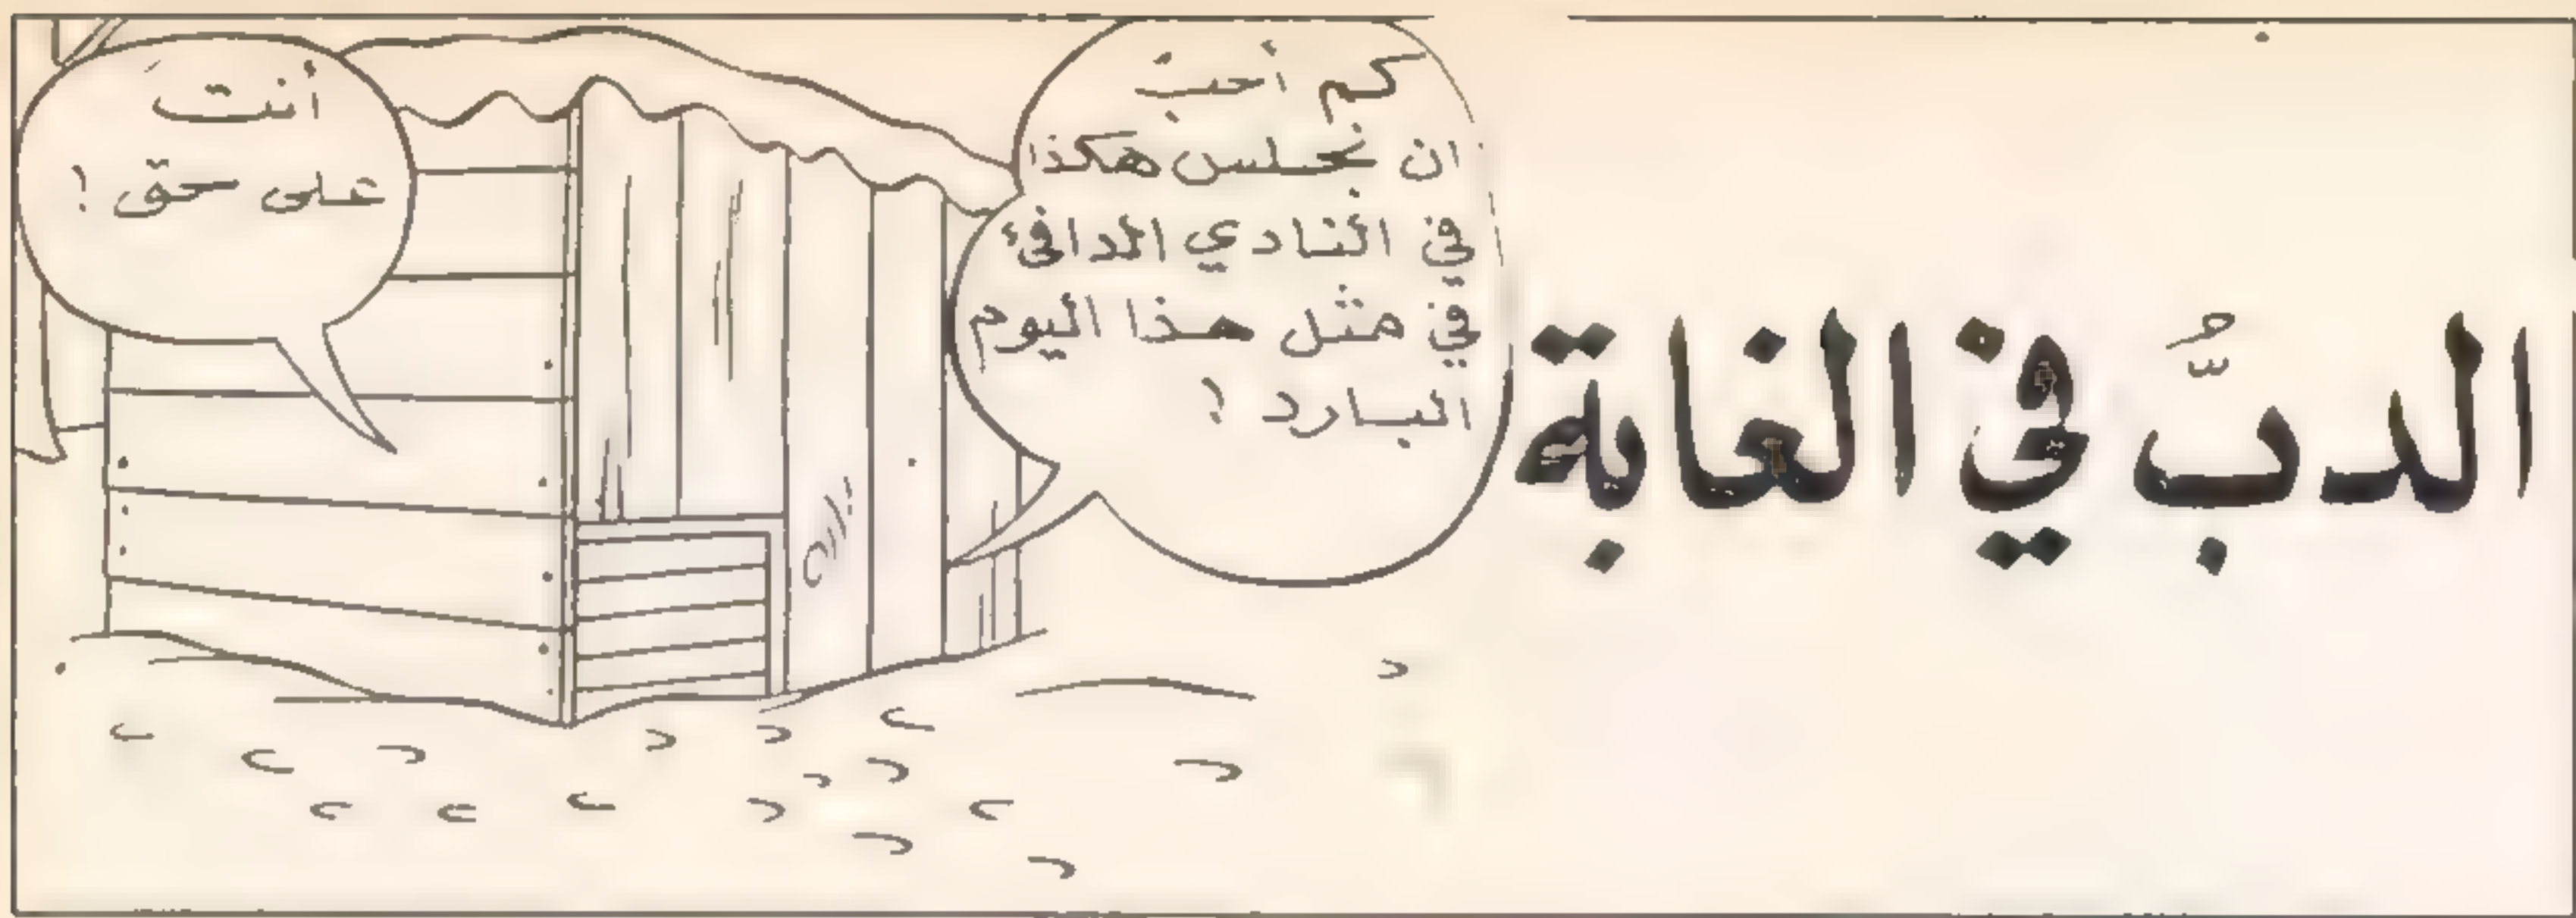 الدبّ في الغابة
كم أحبّ
ان نجلس هكذا
في النادي الدافئ
في مثل هذا اليوم
البارد !
أنت
على حق !